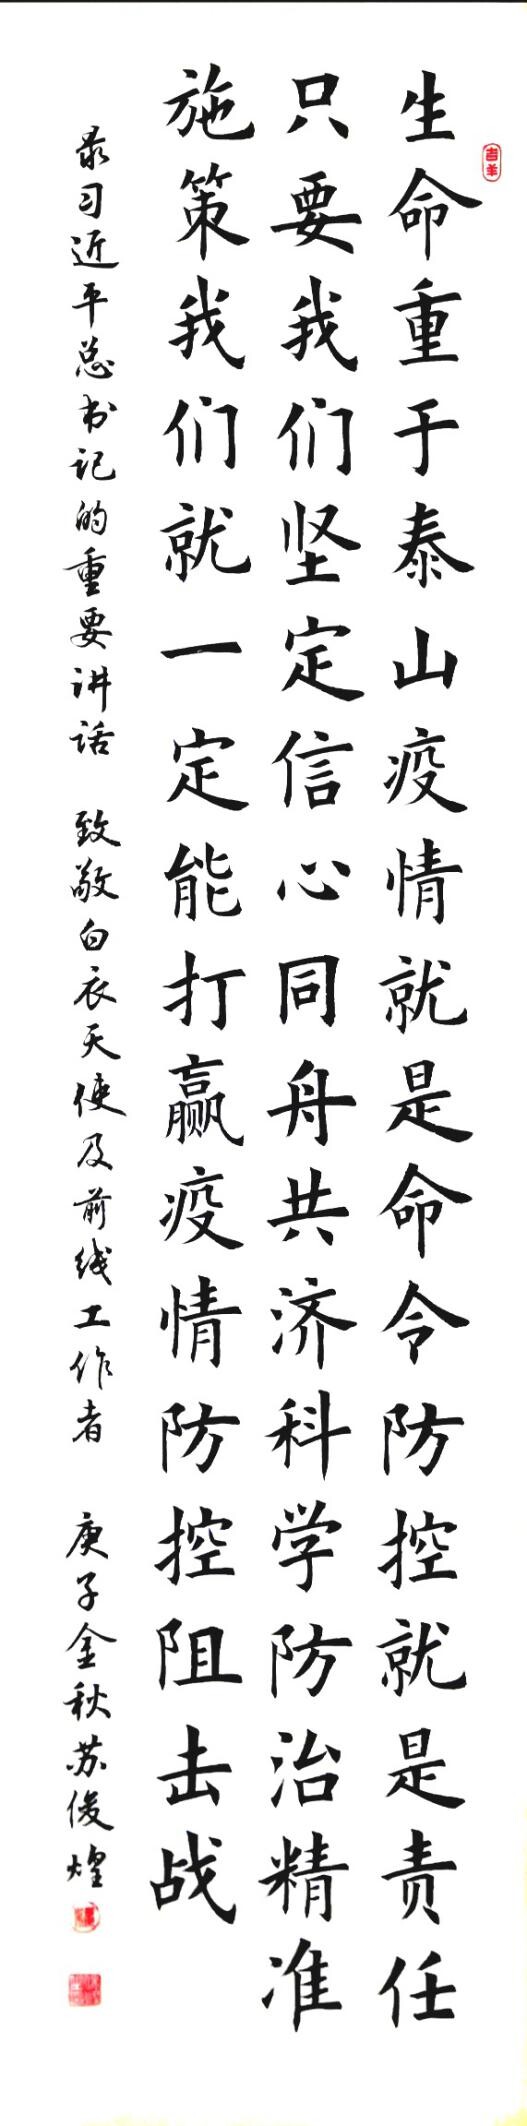 生命重于泰山疫情就是命令防控就是责任
只要我们坚定信心同舟共济科学防治精准
施策我们就一定能打赢疫情防控阻击战
录习近平总书记的重要讲话 致敬白衣天使及前线工作者 庚子金秋苏俊煌
吉羊